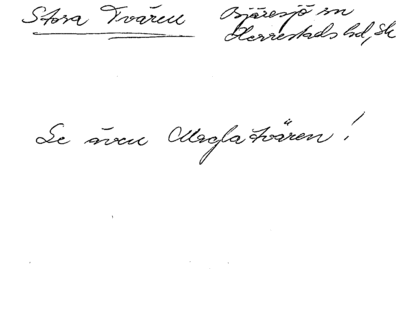 Stora Tvären Bjäresjö sn
Herrestads hd, Sk
Se även Maglatvären!